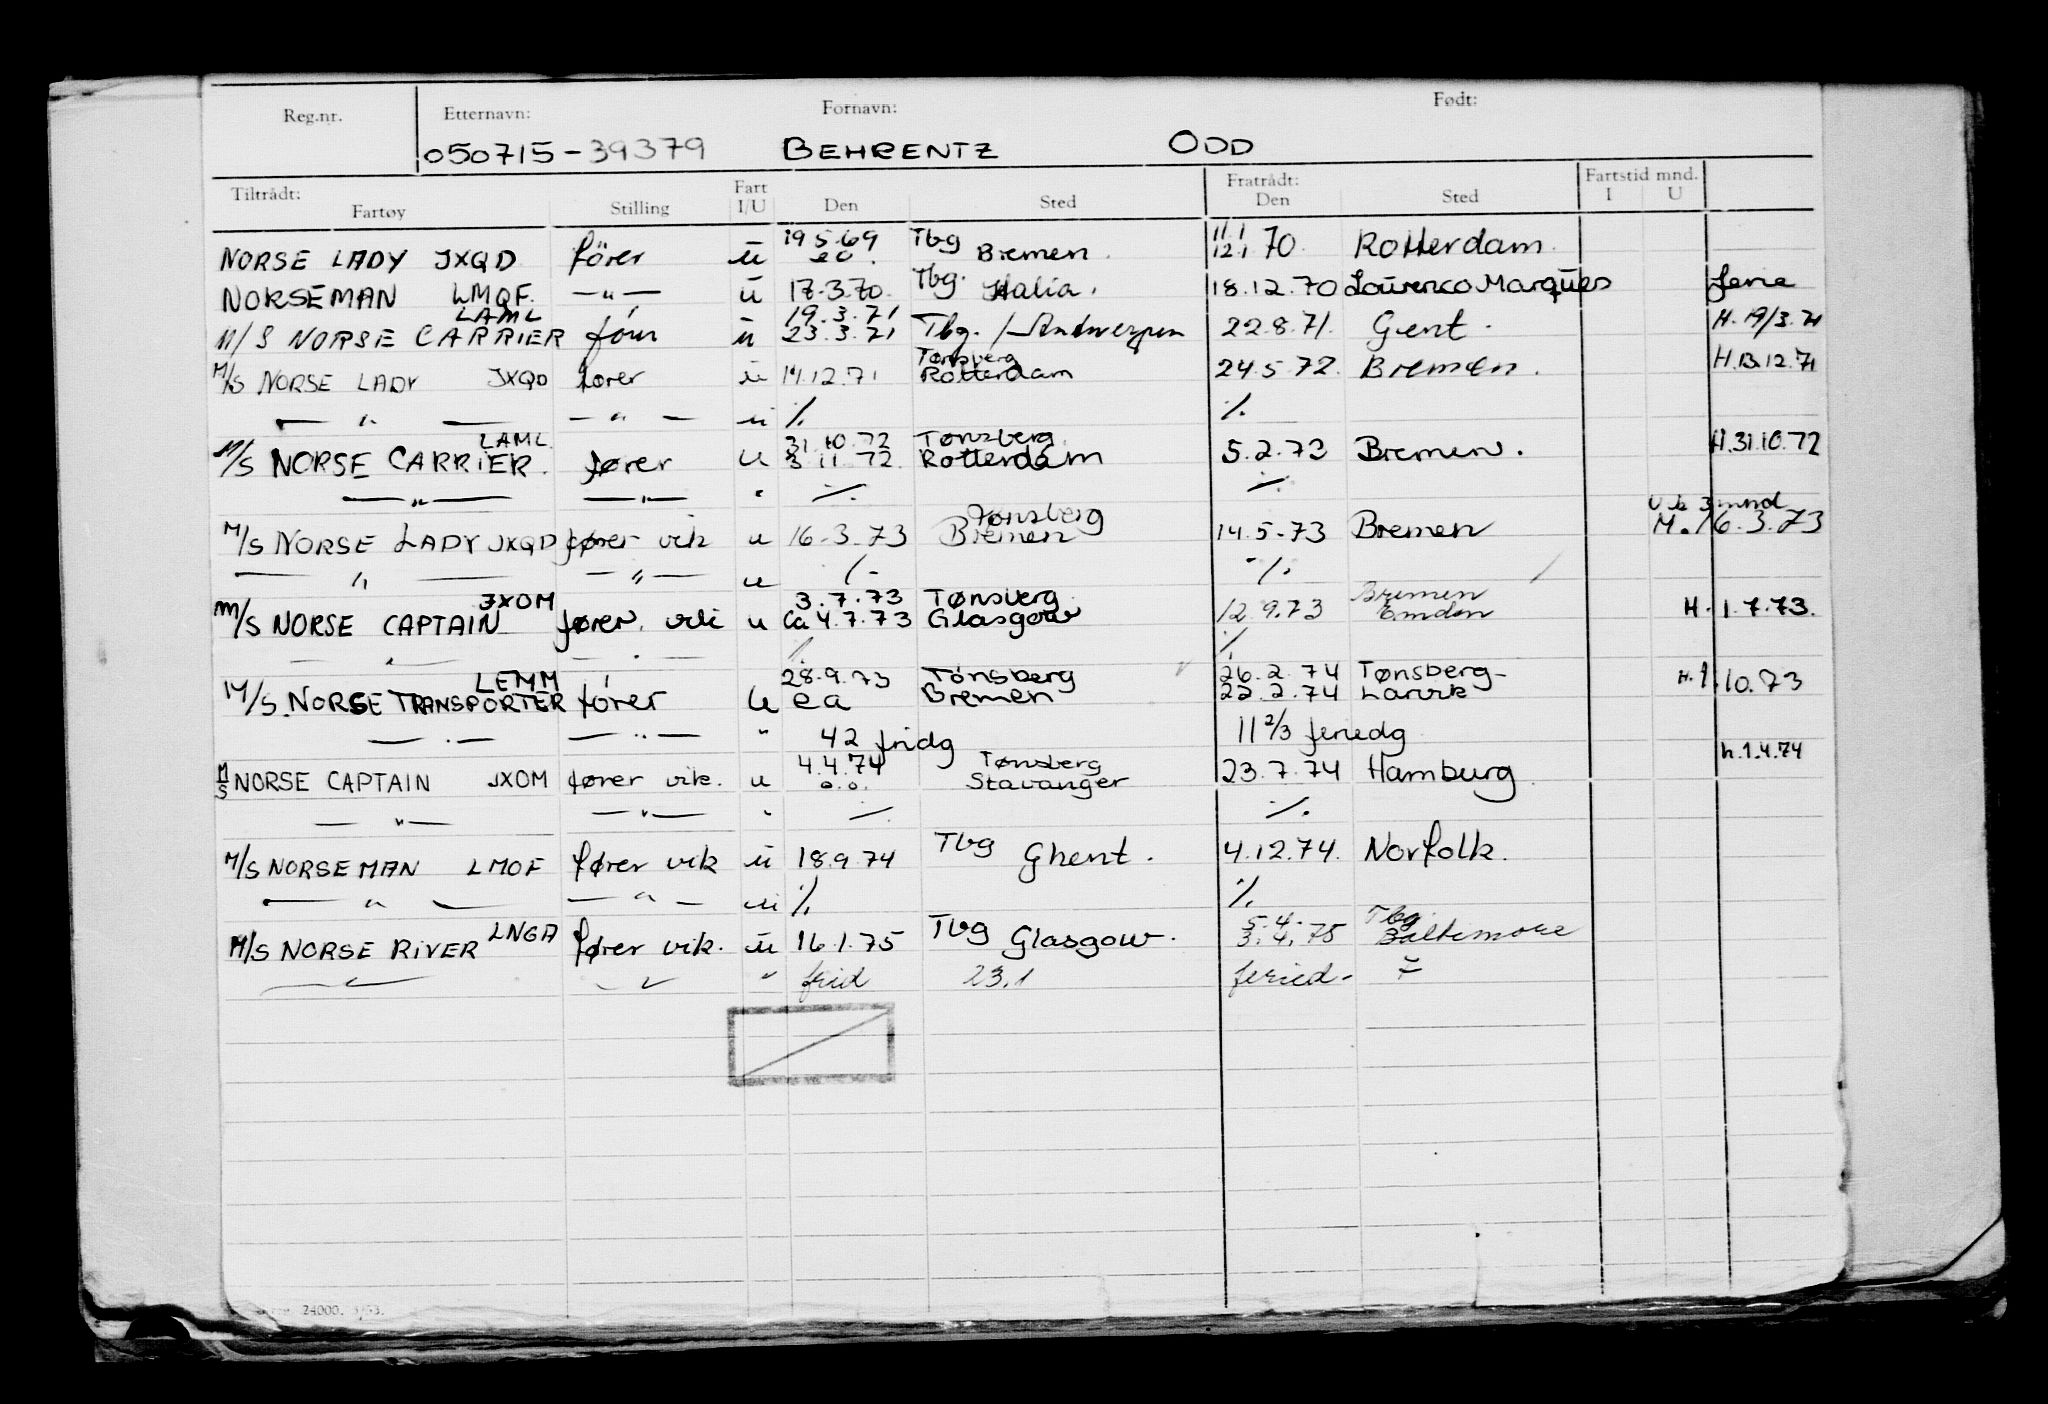 Reg.nr. Etternavn: Fornavn: Født:
050715-39379 BEHRENTZ ODD
Tiltrådt: Fart Fratrådt: Fartstid mnd.
Fartøy Stilling I/U Den Sted Den Sted I U
19.5.69 Tbg 11.1
NORSE LADY JXQD fører ū Bremen. 12.1 70. Rotterdam.
NORSEMAN LMQF. —"— ū 17.3.70. Tbg. Italia. 18.12.70 Lourenco Marques ferie
LAML 19.3.71
M/S NORSE CARRIER fører ū 23.3.71 Tbg. / Antwerpen 22.8.71. Gent. H. 19/3.71
Tønsberg
M/S NORSE LADY JXQD fører ū 14.12.71 Rotterdam 24.5.72. Bremen. H.13.12.71
— " — — " — ū ./. ./.
LAML 31.10.72 Tønsberg
M/S NORSE CARRIER. fører u 3 11.72. Rotterdam 5.2.73 Bremen. H.31.10.72
— " — — " — " ./. ./.
Tønsberg U.k 3 mnd
M/S NORSE LADY JXQD fører vik u 16.3.73 Bremen 14.5.73 Bremen M.16.3.73
— " — — " — u ./. ./.
JXOM 3.7.73 Tønsberg Bremen
M/S NORSE CAPTAIN fører vik u Ca 4.7.73 Glasgow 12.9.73 Emden H. 1.7.73.
— " — — " — ./. ./.
LEMM 28.9.73 Tönsberg 26.2.74 Tønsberg-
M/S. NORSE TRANSPORTER fører u ea Bremen 22.2.74 Larvik H.1.10.73
— " — — " — " 42 fridg 11 2/3 feriedg
4.4.74 Tønsberg h.1.4.74
M/S NORSE CAPTAIN JXOM fører vik. u o.o. Stavanger 23.7.74 Hamburg.
— " — — " — " ./. ./.
M/S NORSEMAN LMOF fører vik ū 18.9.74 Tbg Ghent. 4.12.74. Norfolk.
— " — — " — ū ./. ./.
LNGA 5.4. Tbg.
M/S NORSE RIVER fører vik. ū 16.1.75 Tbg Glasgow. 3.4.75 Baltimore
— " — — " — " frid 23.1 feried-
24000.